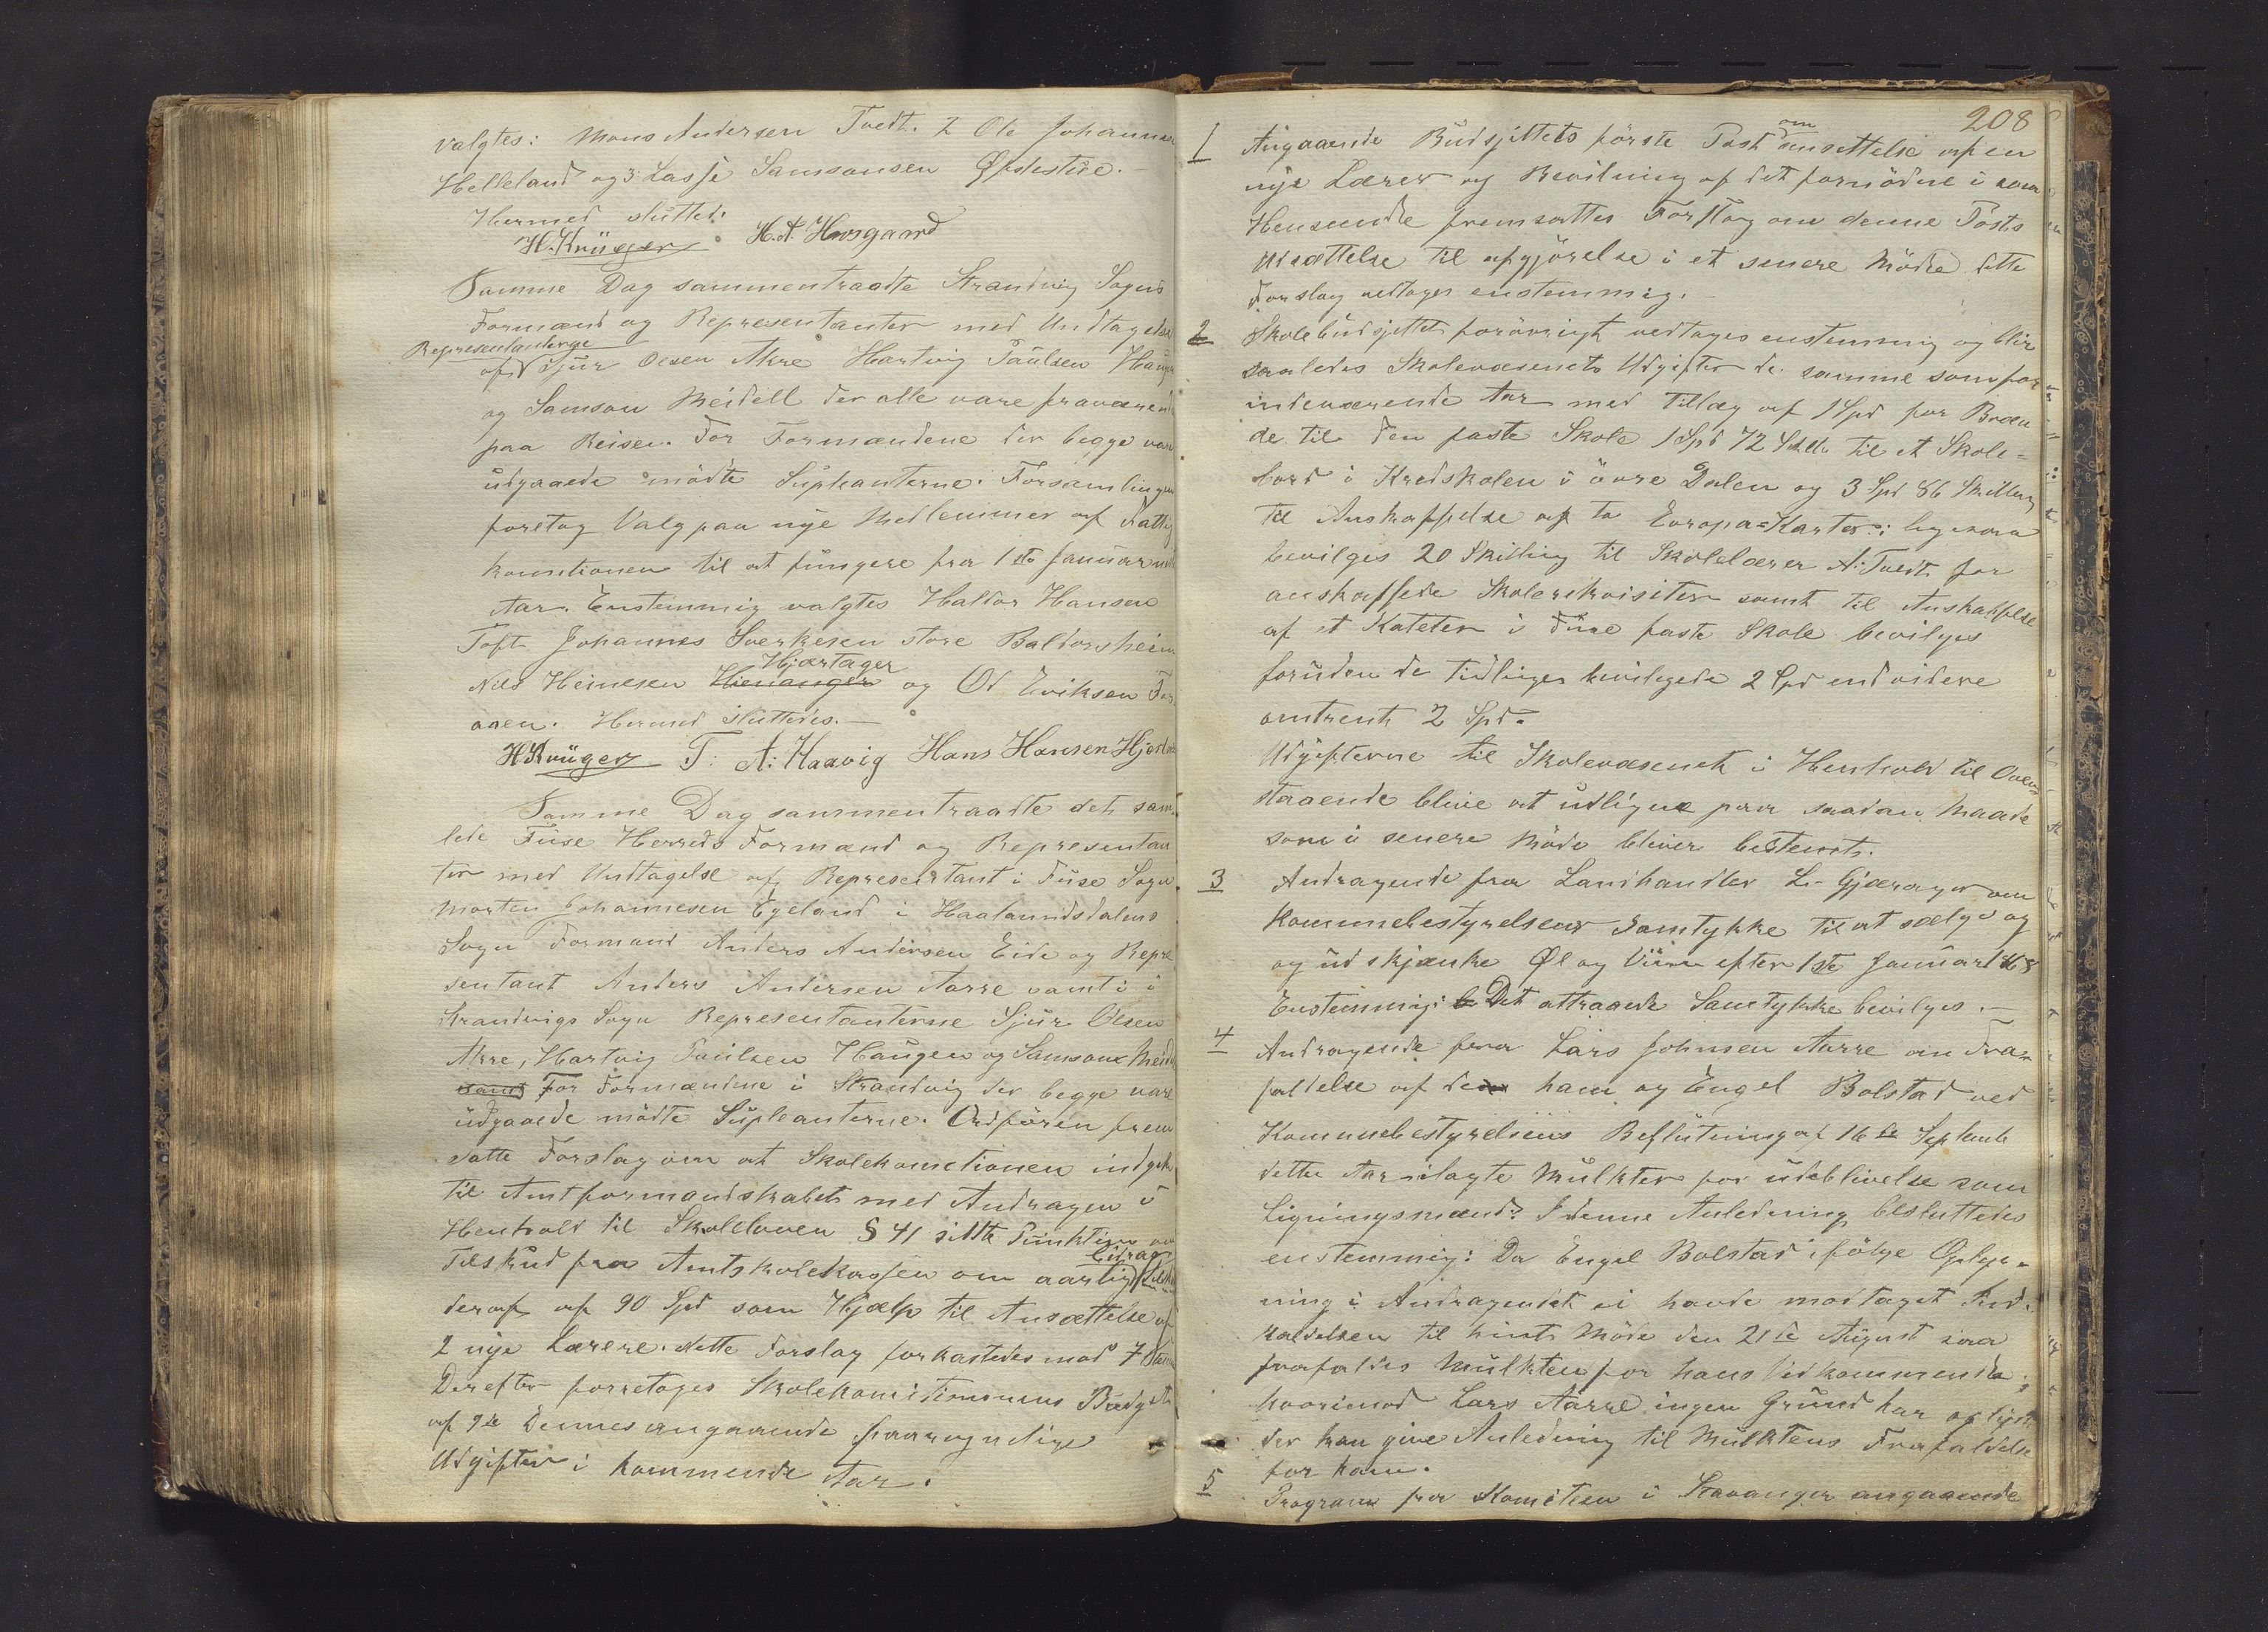 valgtes: Mons Andersen Tvedt. 2 Ole Johannes
Helleland og 3 Lasse Samsonsen Øfstestue.-
Hermed sluttet.
H. Krüger. H. A. Huusgaard
Samme Dag sammentraadte Strandvig Sogns
Formænd og Representanter med Undtagelse
Representanterne
af Sjur Olsen Akre Hartvig Paulsen Haugen
og Samson Meidell der alle vare fraværende
paa Reiser. For Formændene der begge vare
udgaaede mødte Supleanterne. Forsamlingen
foretog Valg paa nye Medlemmer af Fattig
komitionen til at fungere fra 1ste Januar
Aar. Enstemmig valgtes Haldor Hansen
Toft Johannes Sverkesen store Baldersheim
Hjørtager
Nils Heinesen Hienanger og Ol Eriksen
aaen. Hermed sluttedes.-
H Krüger T: A: Haavig Hans Hansen
Samme Dag sammentraadte det sam-
lede Fuse Herreds Formænd og Representan
ter med Undtagelse af Representant i Fuse Sogn
Morten Johannesen Egeland i Haalandsdalens
Sogn Formand Anders Andersen Eide og Repre
sentant Anders Andersen Aarre samt i
Strandvigs Sogn Representanterne Sjur Olsen
Akre, Hartvig Paulsen Haugen og Samson Meidell
samt For Formændene i Strandvig der begge vare
udgaaede mødte Supleanterne. Ordføren frem
satte Forslag om at Skolekomitionen indgik
til Amtformandskabet med Andragen i
Henhold til Skoleloven § 41 sidste Punktum om
Bidrag
Tilskud fra Amtskolekassen om aarligt
deraf af 90 Spd som Hjælp til Ansættelse af
2 nye Lærere. dette Forslag forkastedes mod 7
Derefter foretoges Skolekomitionens Budget
af 9de Dennes angaaende paaregnelige
Udgifter i kommende Aar.
208
om
1 Angaaende Budsjettets første Post ansettelse af en
nye Lærer og Bevilning af det fornødne i saa
Henseende fremsattes Forslag om denne Posts
Udsættelse til afgjørelse i et senere Møde dette
Forslag vedtages enstemmig.-
2 Skolebudsjettet forøvrigt vedtages enstemmig og blir
saaledes Skolevæsenets Udgifter de samme som for
indeværende Aar med Tillæg af 1 Spd for Bræn
de til den faste Skole 1 Spd 72 Skill. til et Skole=
bord i Kredskolen i øvre Dalen og 3 Spd 86 Skilling
til Anskaffelse af to Europa=Karter: ligesom
bevilges 20 Skilling til Skolelærer A: Tvedt for
anskaffede Skolerekvisiter samt til Anskaffelse
af et Kateter i Fuse faste Skole bevilges
foruden de tidliger bevilgede 2 Spd endvidere
omtrent 2 Spd.
Udgifterne til Skolevæsenet i Henhold til Oven
staaende blive at udligne paa saadan Maade
som i senere Møde bliver bestemt.
3 Andragende fra Landhandler L. Gjærager om
Kommunebestyrelsens Samtykke til at sælge og
og udskjænke Øl og Viin efter 1ste Januar 1868
Enstemmig: Det attraaede Samtykke bevilges.-
4 Andragende fra Lars Johnsen Aarre om Fra-
faldelse af den ham og Engel Bolstad ved
Komunebestyrelsens Beslutning af 16de Septemb
dette Aar ilagte Mulkter for udeblivelse som
Ligningsmænd. I denne Anledning besluttedes
enstemmig: Da Engel Bolstad ifølge Oplys-
ning i Andragendet ei havde modtaget Ind-
kaldelsen til hiint Møde den 21de August saa
frafaldes Mulkten for hans Vedkommende;
hvorimod Lars Aarre ingen Grund har oplyst
der kan give Anledning til Mulktens Frafaldelse
for ham.
5 Program fra Komiteen i Stavanger angaaende